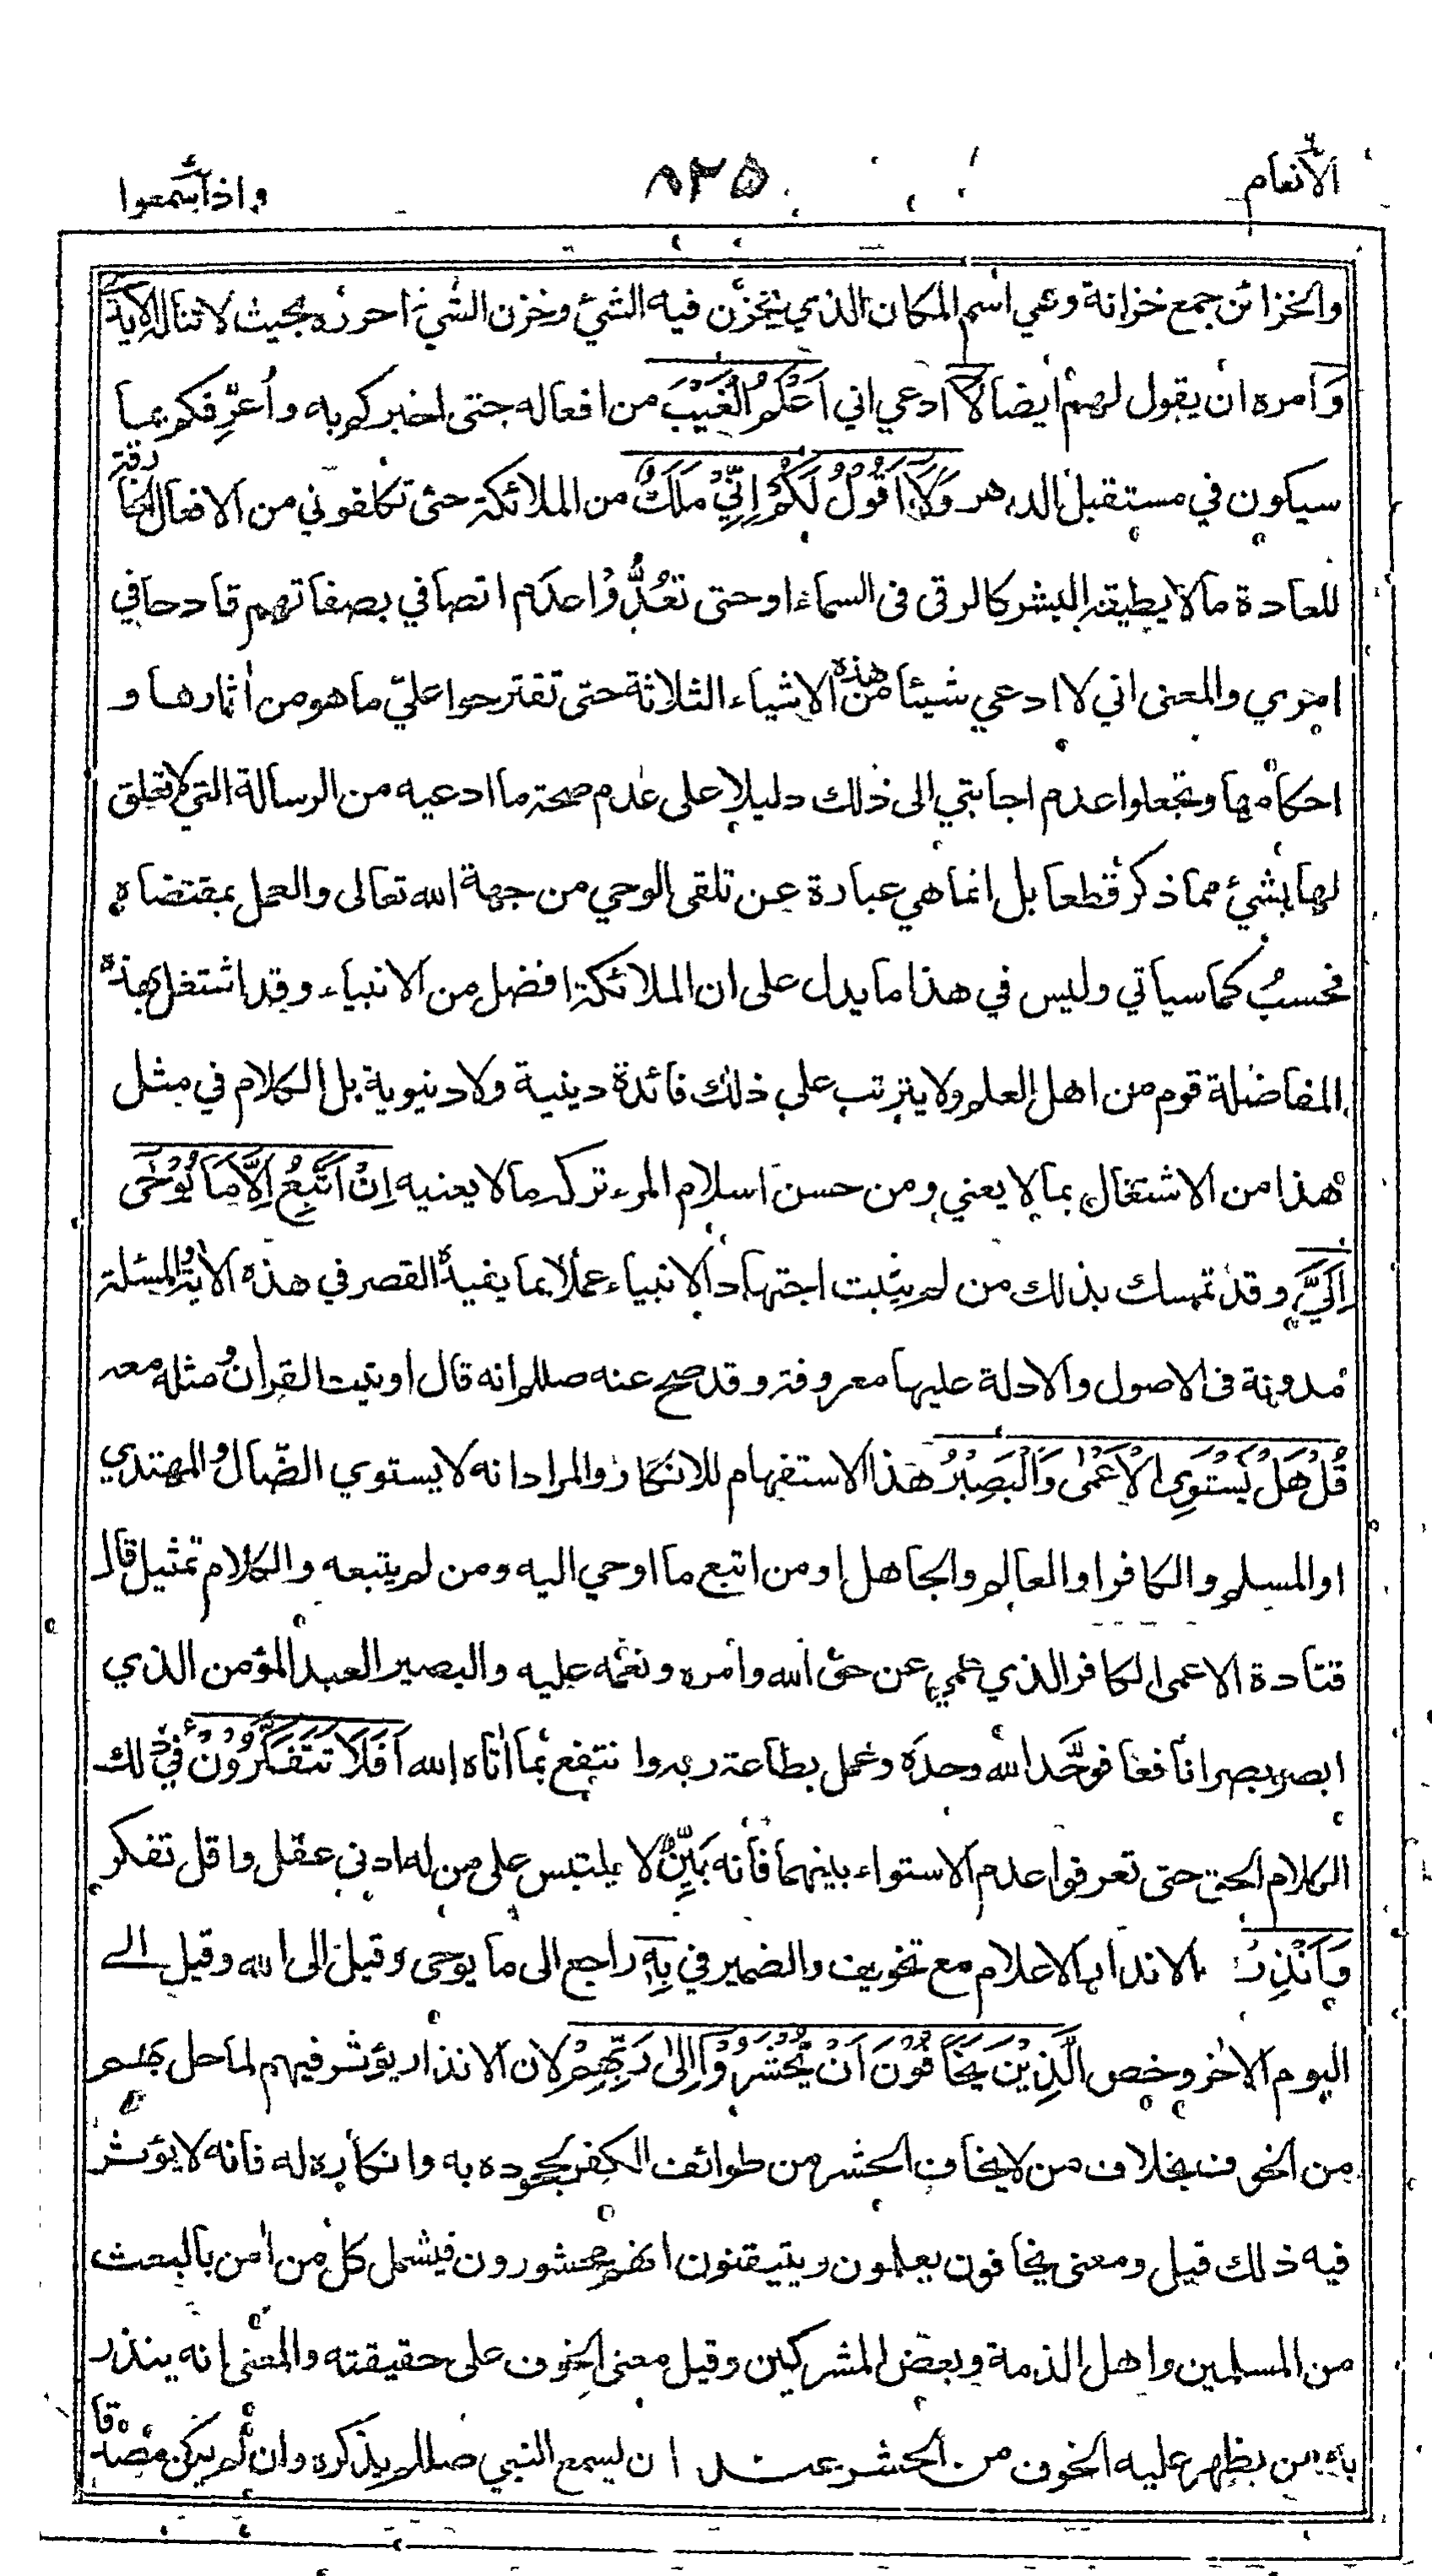 الانعام ٨٢٥ واذاسمعوا
والخزائن جمع خزانة وهي اسم المكان الذي يخزن فيه الشيء وخزن الشيء احرزه بحيث لا تناله الاية
وَامره ان يقول لهم ايضا لآ ادعي اني اَعْلَمُ الْغَيْبَ من افعاله حتى اخبركم به واُعرِّفكم بما
سيكون في مستقبل الدهر وَلَآ اَقُوْلُ لَكُمْ اِنِّيْ مَلَكٌ من الملائكة حتى تكلفوني من الافعال الخارقة
للعادة ما لا يطيقه البشر كالرقى فى السماء او حتى تعُدُّوْا عدم اتصافي بصفاتهم قادحا في
امري والمعنى اني لا ادعي شيئا من هذه الاشياء الثلاثة حتى تقترحوا عليّ ما هو من اٰثارها و
احكامها وتجعلوا عدم اجابتي الى ذلك دليلا على عدم صحة ما ادعيه من الرسالة التي لا تعلق
لها بشيء مما ذكر قطعا بل انما هي عبارة عن تلقى الوحي من جهة الله تعالى والعمل بمقتضاه
فحسبُ كما سياتي وليس في هذا ما يدل على ان الملائكة افضل من الانبياء وقد اشتغل بهذه
المفاضلة قوم من اهل العلم ولا يترتب على ذلك فائدة دينية ولا دنيوية بل الكلام في مثل
هذا من الاشتغال بما لا يعني ومن حسن اسلام المرء تركه ما لا يعنيه اِنْ اَتَّبِعُ اِلَّا مَا يُوْحٰٓى
اِلَيَّ وقد تمسك بذلك من لم يثبت اجتهاد الانبياء عملا بما يفيده القصر في هذه الاية والمسئلة
مدونة فى الاصول والادلة عليها معروفة وقد صح عنه صللم انه قال اوتيت القراٰن ومثله معه
قُلْ هَلْ يَسْتَوِى الْاَعْمٰى وَالْبَصِيْرُ هذا الاستفهام للانكار والمراد انه لا يستوي الضّال والمهتدي
او المسلم والكافر او العالم والجاهل او من اتبع ما اوحي اليه ومن لم يتبعه والكلام تمثيل قال
قتادة الاعمى الكافر الذي عمي عن حق الله وامره ونعمه عليه والبصير العبد المؤمن الذي
ابصر بصرا نافعا فوحَّد الله وحده وعمل بطاعة ربه وانتفع بما اٰتاه الله اَفَلَا تَتَفَكَّرُوْنَ في ذلك
الكلام الحق حتى تعرفوا عدم الاستواء بينهما فانه بَيِّنٌ لا يلتبس على من له ادنى عقل واقل تفكر
وَاَنْذِرْ الانذار الاعلام مع تخويف والضمير في بِهِ راجع الى ما يوحى وقيل الى الله وقيل الى
اليوم الاٰخر وخص الَّذِيْنَ يَخَافُوْنَ اَنْ يُّحْشَرُوْٓا اِلٰى رَبِّهِمْ لان الانذار يؤثر فيهم لما حل بهم
من الخوف بخلاف من لا يخاف الحشر من طوائف الكفر لجحوده به وانكاره له فانه لا يؤثر
فيه ذلك قيل ومعنى يخافون يعلمون ويتيقنون انهم محشورون فيشمل كل من اٰمن بالبعث
من المسلمين واهل الذمة وبعض المشركين وقيل معنى الخوف على حقيقته والمعنى انه ينذر
به من يظهر عليه الخوف من الحشر عند ان يسمع النبي صللم يذكره وان لم يكن مصدقا